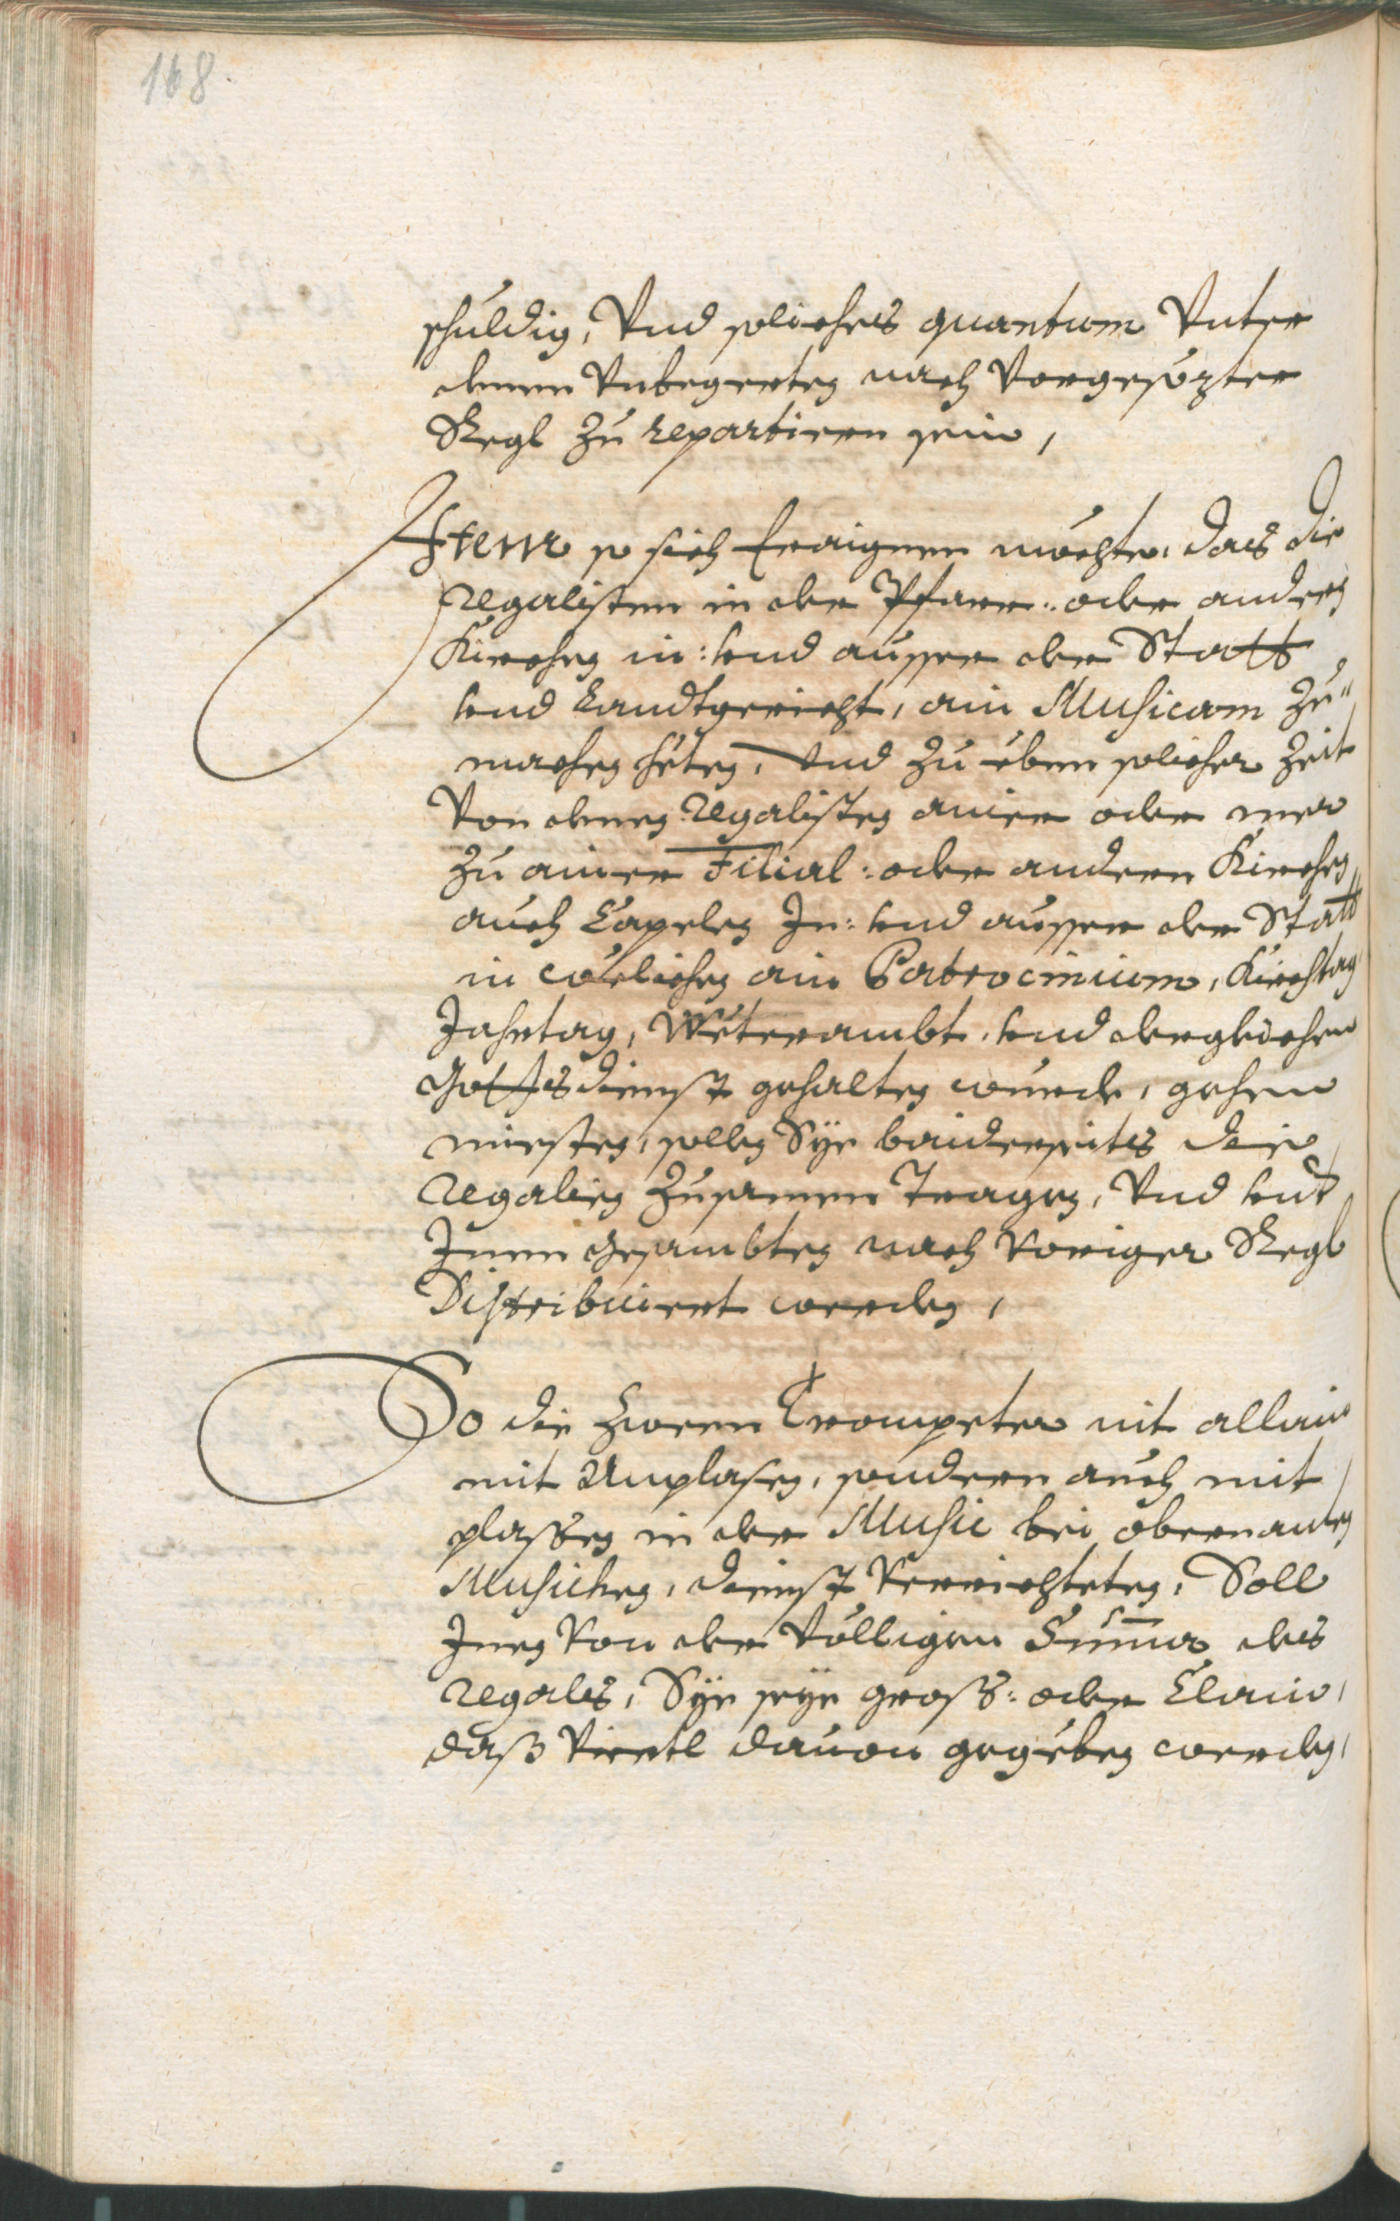 168
schuldig, Vnd soliches quantum Vnter
denen Vnbegerten nach Vorgesözter
Regl zu repartiern sein,
Item so sich Eraignen möchte, das die
Regalisten in der Pfarr: oder andern
Kirchen in: vnd ausser der Statt
vnd Landtgericht, ain Musicam zu"
machen heten, Vnd zu eben solicher Zeit
Von denen Regalisten ainer oder mer
zu ainer Filial: oder andern Kirchen,
auch Capelen In: vnd ausser der Statt
in wölichen ain Patrocinium, Kirchtag
Jahrtag, Weterambt, vnd dergleichen
Gottsdienst gehalten wurde, gehen
miesten, sollen Sye baiderseits die
Regalien zusamen Tragen, Vnd vnd
Inen Gesambten nach Voriger Regl
Distribuiert werden,
So die zween Trompeter nit allain
mit Anplasen, sondern auch mit
plassen in der Music bei obernanten
Musichen, dienst Verrichteten, Soll
Inen Von der Völligen Summa des
Regales, Sye seye gross: oder Clain,
dass Viertl dauon gegeben werden,